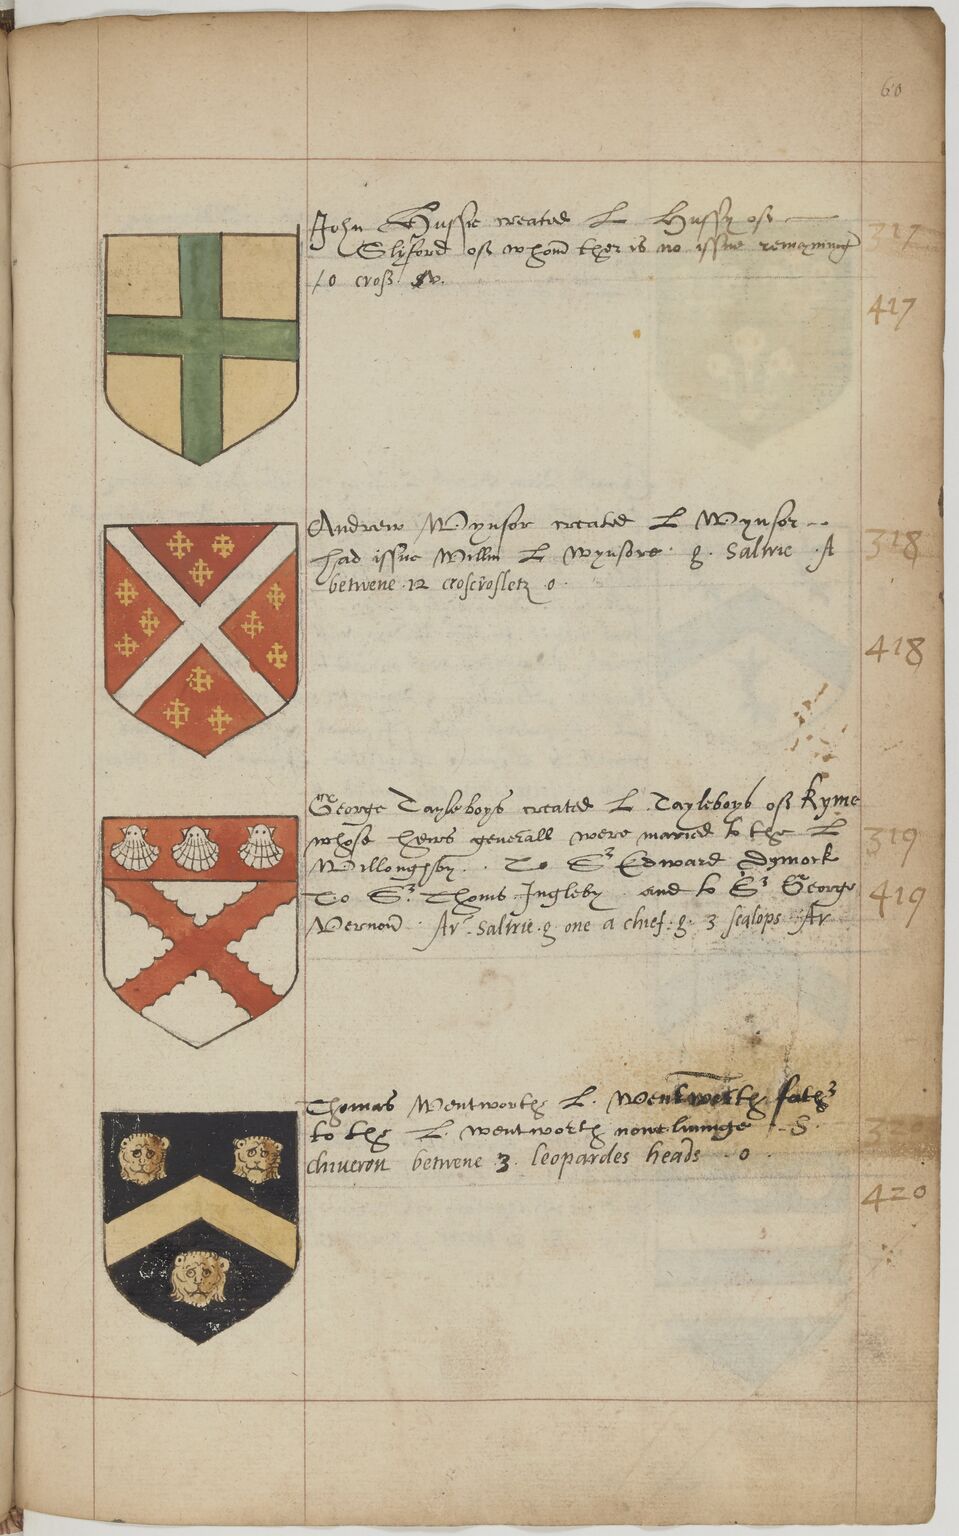 60
John Hussie created L Hussy of
Sliford of whom ther is no issue remayning
/ o cross v.
317
417
Andrew Wynsor created L Wynsor
had issue Willm L Wynsore . g . Saltrie . A
betwene . 12 croscrosletz o .
318
418
George Tayleboys created L Tayleboys of Kyme
whose heirs generall were maried to the L
Willoughby . To Sr Edward Dymock
To Sr Thoms Ingleby and to Sr George
Vernon . Ar . Saltrie . g . one a chief . g . 3 scalops Ar
319
419
Thomas Wentworth L . Wentworth father
to the L . wentworth nowe livinge . S .
chiveron betwene 3 leopardes heads . o .
420